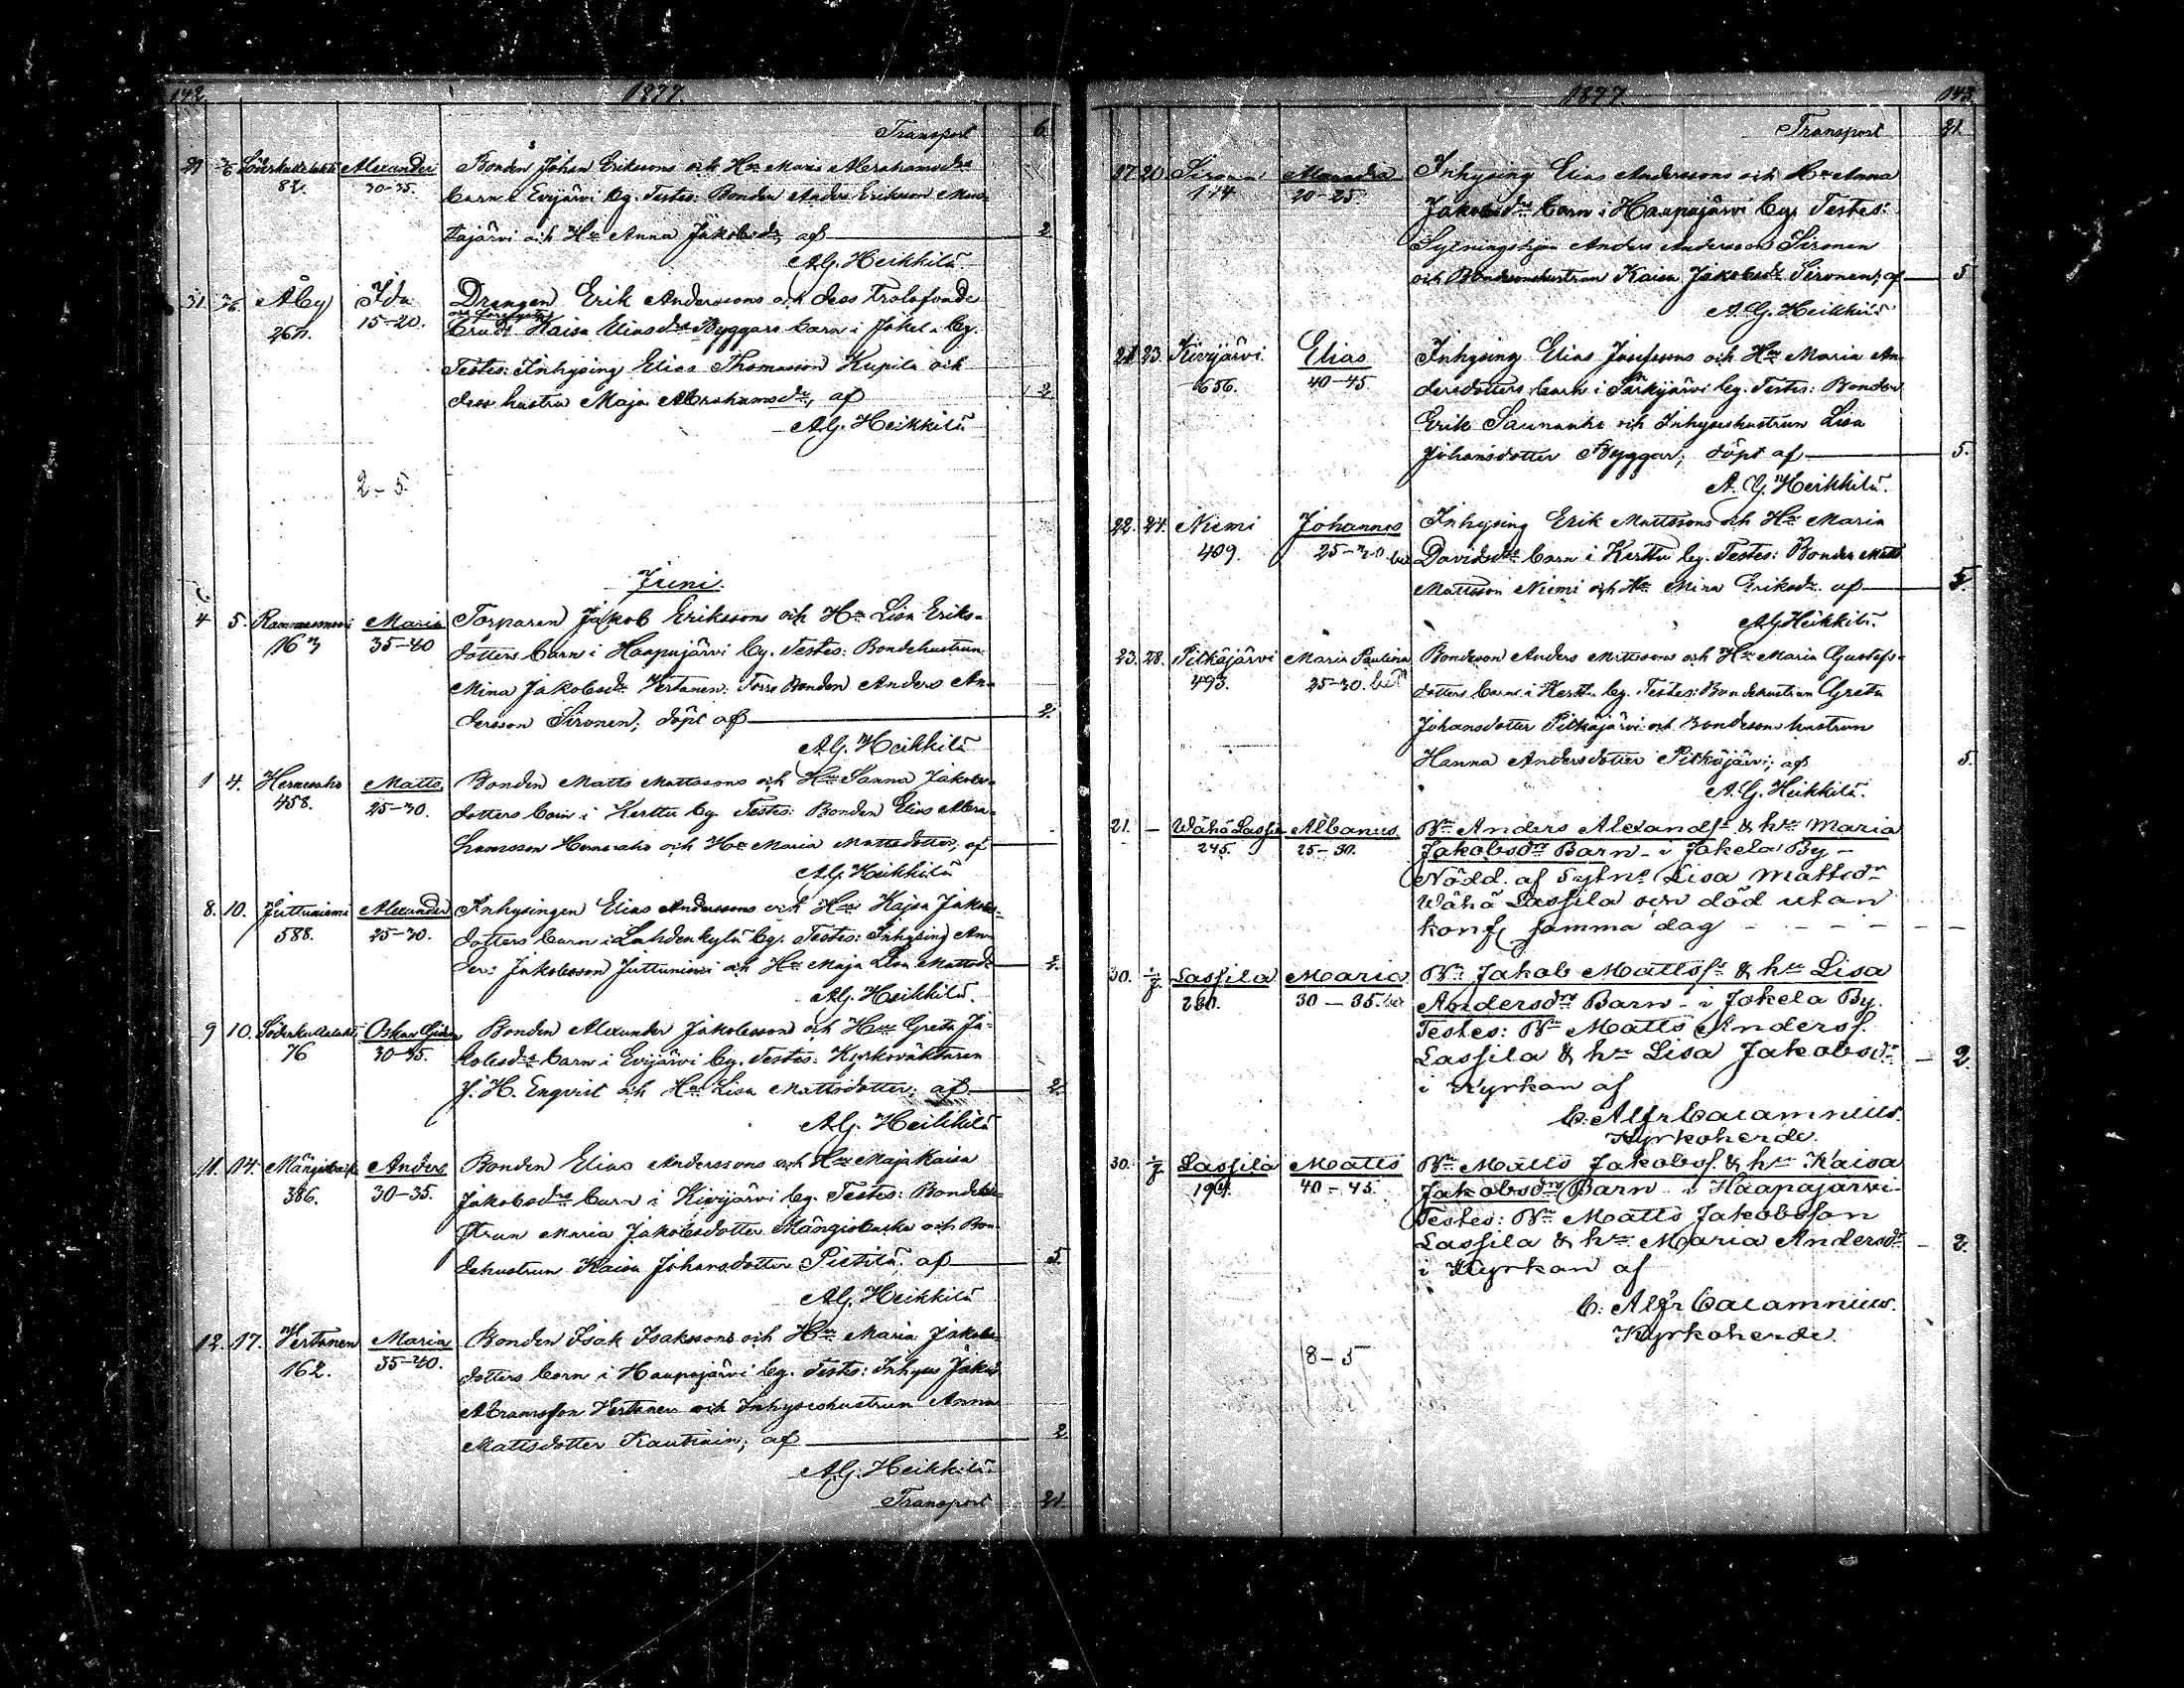 142.
1877.
Transport 6
Alexander Bonden Johan Erikssons och Hu Maria Abrahamsdrs
82. 30-35. barn i Evijärvi by. Testes: Bonden Anders Eriksson
tajärvi och Hu Anna Jakobsdr, af 2
A.G. Heikkilä
31. Åby Ida Drängen Erik Anderssons och dess trolofvade
15-20. brud Kaisa Eliasdrs Byggars barn i Jokela by.
267.
Testes: Inhysing Elias Thomasson Kupila och
dess hustru Maja Abrahamsdr, af 2
A.G. Heikkilä
2-5.
Juni.
4 5. Maria Torparen Jakob Erikssons och Hu Lisa Eriks-
163 35-40 dotters barn i Haapajärvi by. Testes: Bondehustrun
Mina Jakobsdr Vertanen. Bonden Anders An-
dersson Sironen; döpt af 2.
A.G. Heikkilä
1 4. Hernesaho Matts Bonden Matts Mattssons och Hu Sanna Jakobs-
458. 25-30. dotters barn i Kerttu by. Testes: Bonden Elias Abra-
hamsson Hernesaho och Hu Maria Mattsdotter, af
A.G. Heikkilä
8. 10. Juttuniemi Alexander Inhysingen Elias Anderssons och Hu Kajsa Jakobs-
588. 25-30. dotters barn i Lahdenkylä by. Testes: Inhysing An-
ders Jakobsson Juttuniemi och Hu Maja Lisa Mattsdr 2.
A.G. Heikkilä.
9 10. Oskar Bonden Alexander Jakobssons och Hu Greta Ja-
76 30-35. kobsdrs barn i Evijärvi by. Testes: Kyrkoväktaren
J. H. Enqvist och Hu Lisa Mattsdotter; af 2
A.G. Heikkilä
11. 14. Anders Bonden Elias Anderssons och Hu Maja Kaisa
386. 30-35. Jakobsdrs barn i Kivijärvi by. Testes: Bondehu-
strun Maria Jakobsdotter Mängisbacka och Bon-
dehustrun Kaisa Johansdotter Pietilä, af 5
A.G. Heikkilä
12. 17. Vertanen Maria Bonden Isak Isakssons och Hu Maria Jakobs-
162. 35-40. dotters barn i Haapajärvi by. Testes: Inhyses Jakob
Abramsson Vertanen och Inhyseshustrun Anna
Mattsdotter Kautiain; af 2.
A.G. Heikkilä
Transport 21
1877. 143.
Transport 21.
17. 20. Sironen Inhysing Elias Anderssons och Hu Anna
114 20-25 Jakobsdrs barn i Haapajärvi by. Testes:
Sytningshjon Anders Andersson Sironen
och Bondesonhustrun Kaisa Jakobsdr Sironen; af 5
A.G. Heikkilä
21 23. Kivijärvi Elias Inhysing Elias Josefssons och Hu Maria An-
656. 40-45. dersdotters barn i Särkijärvi by. Testes: Bonden
Erik Saunanhi och Inhyseshustrun Lisa
Johansdotter Byggar; döpt af 5.
A.G. Heikkilä.
22. 24. Niemi Johannes Inhysing Erik Mattssons och Hu Maria
409. 25-30. Davidsdrs barn i Kerttu by. Testes: Bonden Matts
Mattsson Niemi och Hu Mina Eriksdr. af 5.
A.G. Heikkilä.
23. 28. Pitkäjärvi Maria Paulina Bondeson Anders Mattssons och Hu Maria Gustafs-
493. 25-30. dotters barn i Kerttu by. Testes: Bondehustrun Greta
Johansdotter Pitkäjärvi och bondesons hustrun
Hanna Andersdotter Pitkäjärvi; af 5.
A.G. Heikkilä.
21. — Wähä Lassila Albanus Bn Anders Alexandsr & hu Maria
245. 25-30. Jakobsdrs Barn - i Jokela By -
Nödd. af Sytne Lisa Mattsdr
Wähä Lassila och död utan
konf. samma dag - - - - -
30. Lassila Maria Bn Jakob Mattssr & hu Lisa
230. 30-35. Andersdrs Barn - i Jokela By.
Testes: Bn Matts Anders.
Lassila & hu Lisa Jakobsdr - 2.
i Kyrkan af
C. Alfr Calamnius.
Kyrkoherde.
30. Lassila Matts Bn Matts Jakobs. & hu Kaisa
40-45. Jakobsdrs Barn i Haapajärvi-
Testes: Bn Matts Jakobsson
Lassila & hu Maria Andersdr - 2.
i Kyrkan af
C. Alfr Calamnius.
Kyrkoherde.
8-5